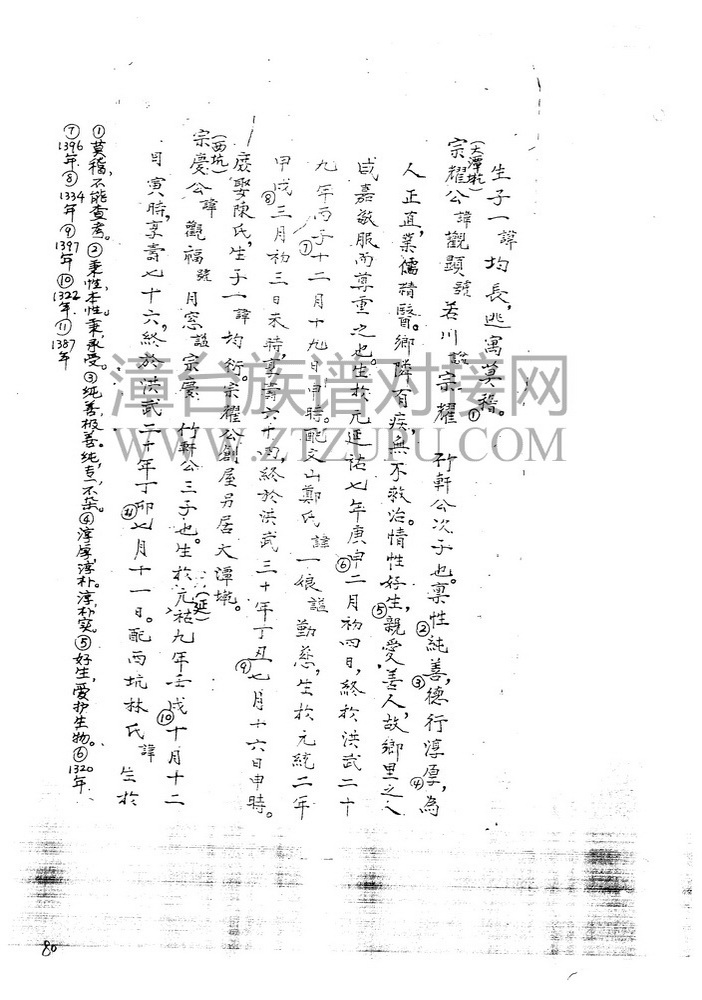 生子一諱均長，逃寓莫稽。①
(大潭墘)
宗耀公諱觀顯號若川謚宗耀 竹軒公次子也。禀性純善，②德行淳厚，③為④
人正直，業儒精醫。鄉隣有疾，無不救治。情性好生，⑤親愛善人，故鄉里之人
咸嘉敬服而尊重之也。生於元延祐七年庚申⑥二月初四日，終於洪武二十
九年丙子⑦十二月十九日申時。配文山鄭氏諱一娘謚勤慈，生於元統二年
甲戌⑧三月初三日未時，享壽六十四，終於洪武三十年丁丑⑨七月十六日申時。
庶娶陳氏，生子一諱均衍。宗耀公創屋另居大潭墘。
(西坑)
宗慶公諱觀福號月窓謚宗慶 竹軒公三子也。生於元(延)祐九年壬戌⑩十月十二
日寅時，享壽七十六，終於洪武二十年丁卯⑪七月十一日。配西坑林氏諱 生於
①莫稽，不能查考。②秉性，本性。秉，承受。③纯善，极善。纯，专一不杂。④淳厚，淳朴。淳，朴实。⑤好生，爱护生物。⑥1320年
⑦1396年⑧1334年⑨1397年⑩1322年⑪1387年
80
漳台族谱对接网
WWW.ZTZUPU.COM